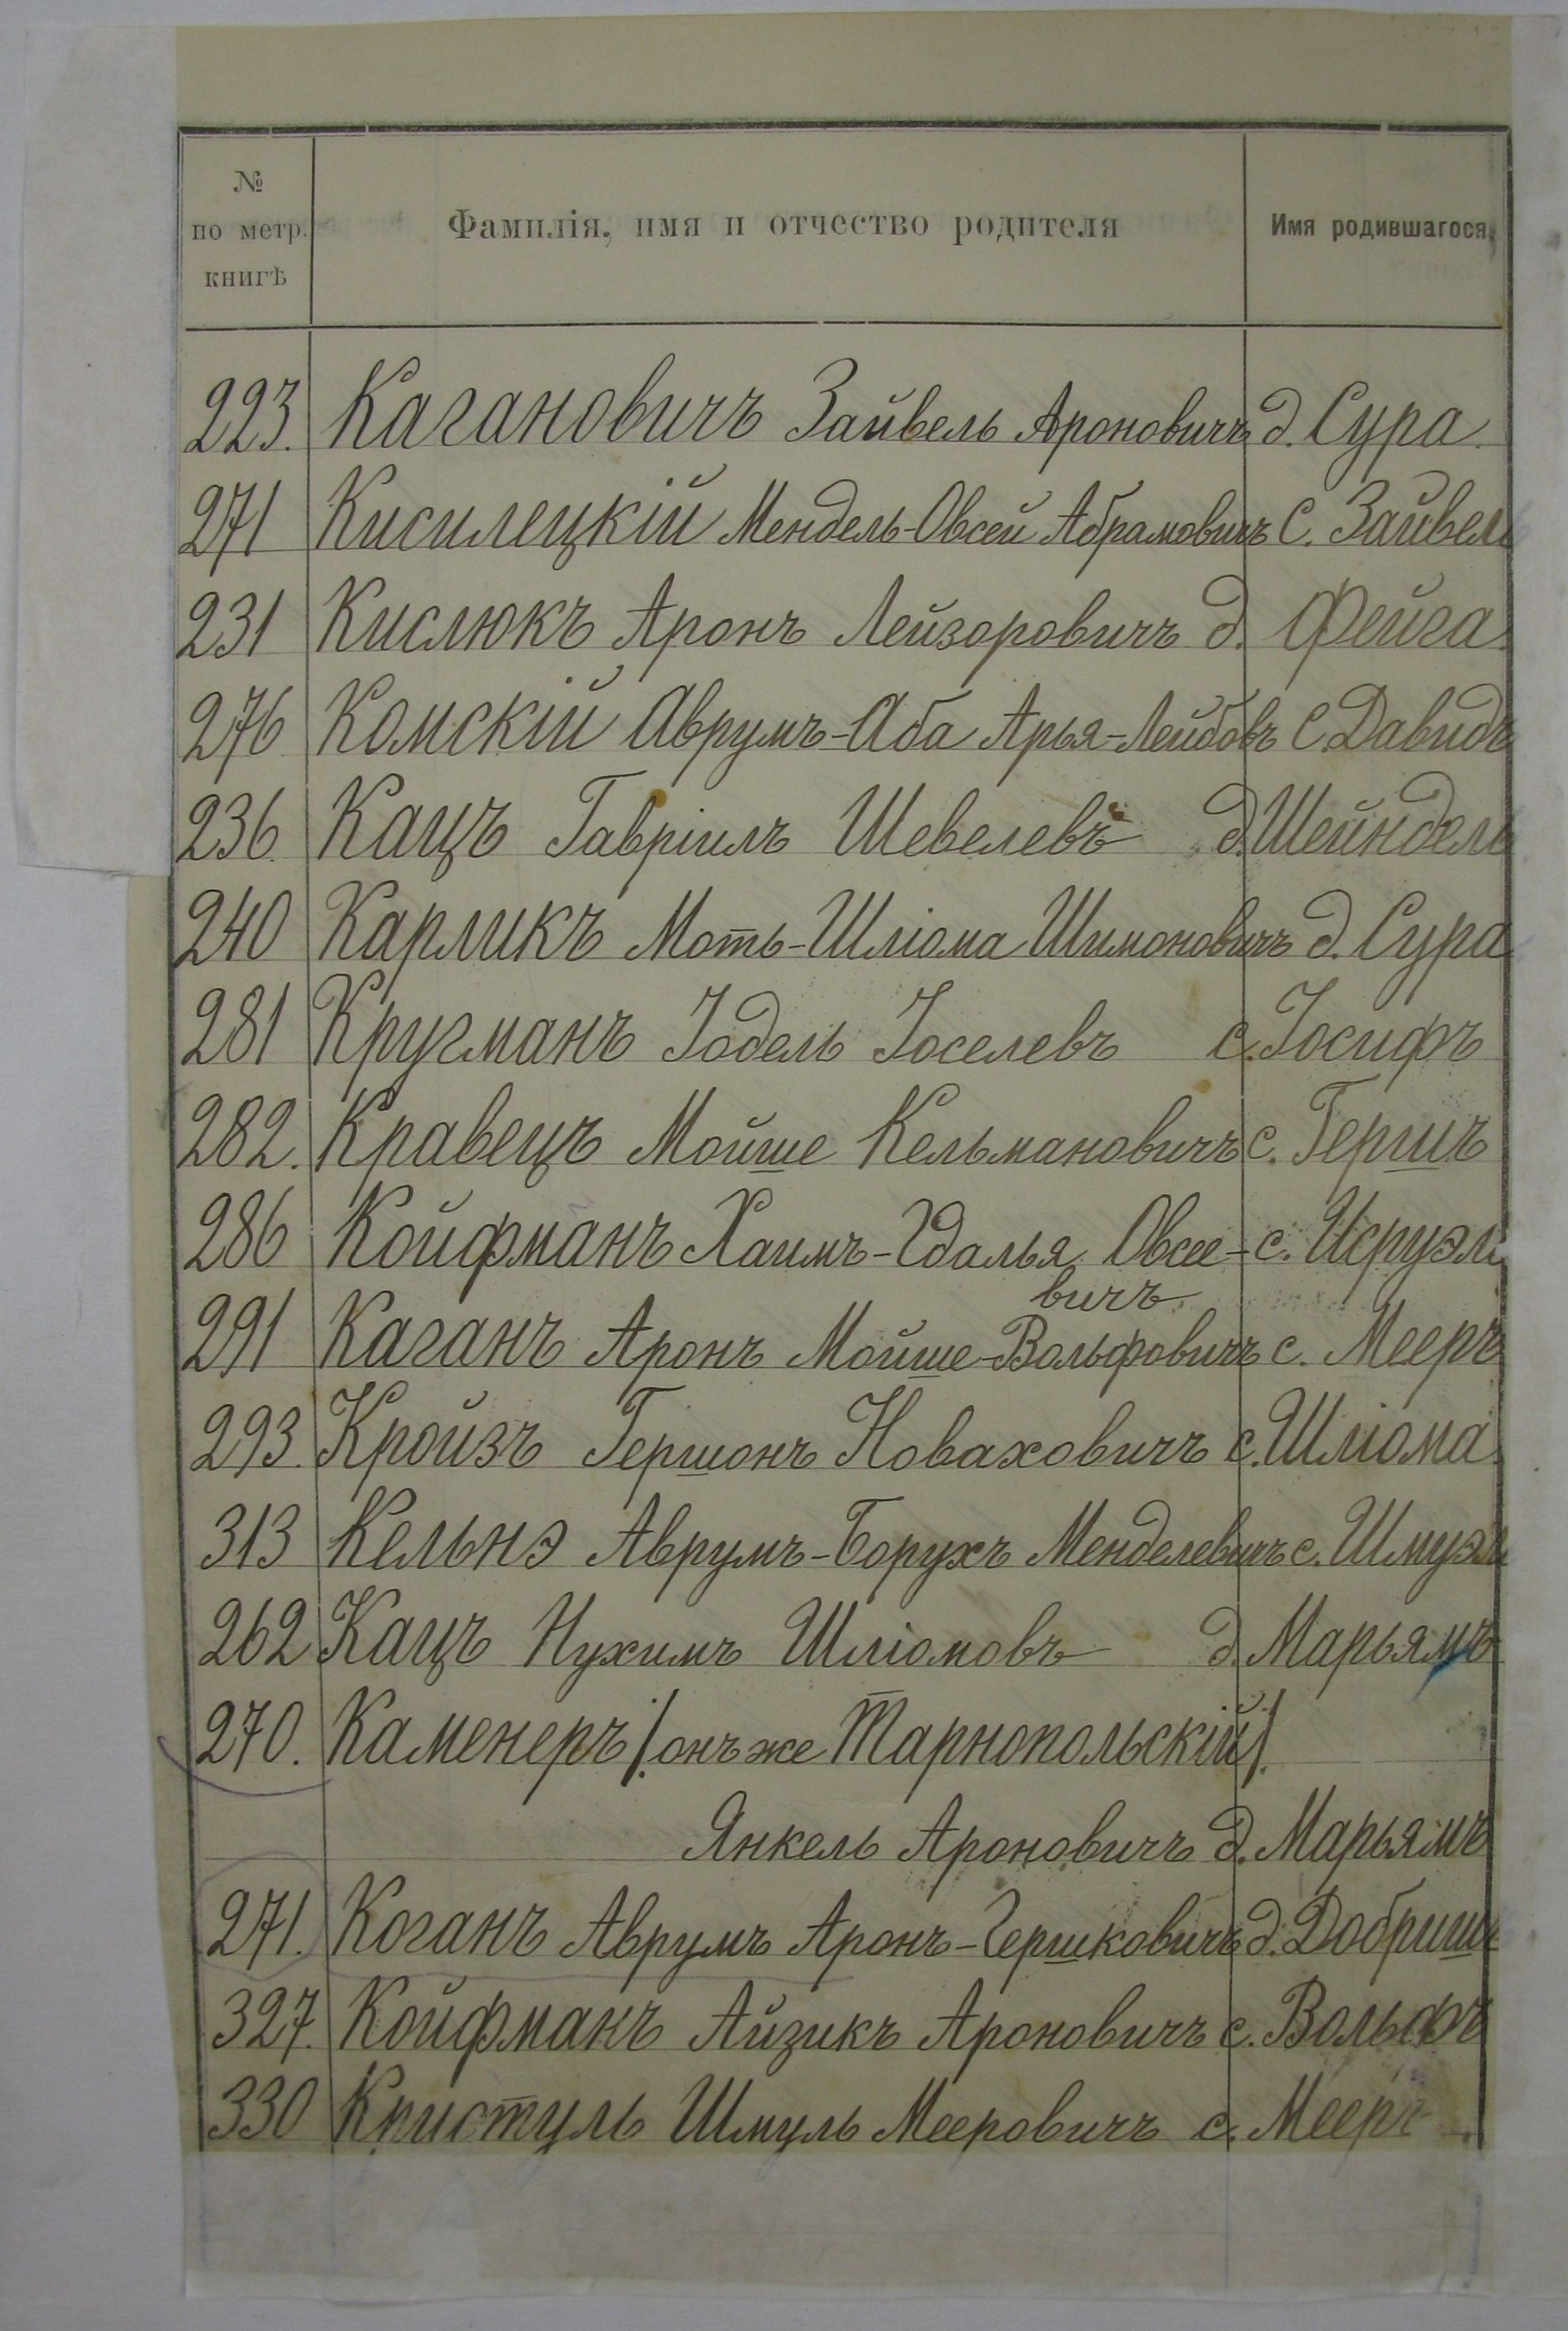 № по метр. книгѣ Фамилія, имя и отчество родителя Имя родившагося
223. Кагановичъ Зайвель Ароновичъ д. Сура.
271 Кисилецкій Мендель-Овсей Абрамовичъ с. Зайвель
231 Кислюкъ Аронъ Лейзоровичъ д. Фейга.
276 Комскій Аврумъ-Аба Арья-Лейбовъ с. Давидъ
236. Кацъ Гавріилъ Шевелевъ д. Шейндель
240 Карликъ Моть-Шліома Шимоновичъ д. Сура
281 Кругманъ Іодель Іоселевъ с. Іосифъ
282. Кравецъ Мойше Кельмановичъ с. Гершъ
286 Койфманъ Хаимъ-Гдалья Овсее- с. Исруэль
вичъ
291 Каганъ Аронъ Мойше-Вольфовичъ с. Мееръ
293. Кройзъ Гершонъ Новаховичъ с. Шліома.
313 Кельнэ Аврумъ-Борухъ Менделевичъ с. Шмуэль
262 Кацъ Нухимъ Шліомовъ д. Марьямъ
270. Каменеръ /онъ же Тарнопольскій/
Янкель Ароновичъ д. Марьямъ
271. Коганъ Аврумъ Аронъ-Гершковичъ д. Добришъ
327. Койфманъ Айзикъ Ароновичъ с. Вольфъ
330 Кристуль Шмуль Мееровичъ с. Мееръ.